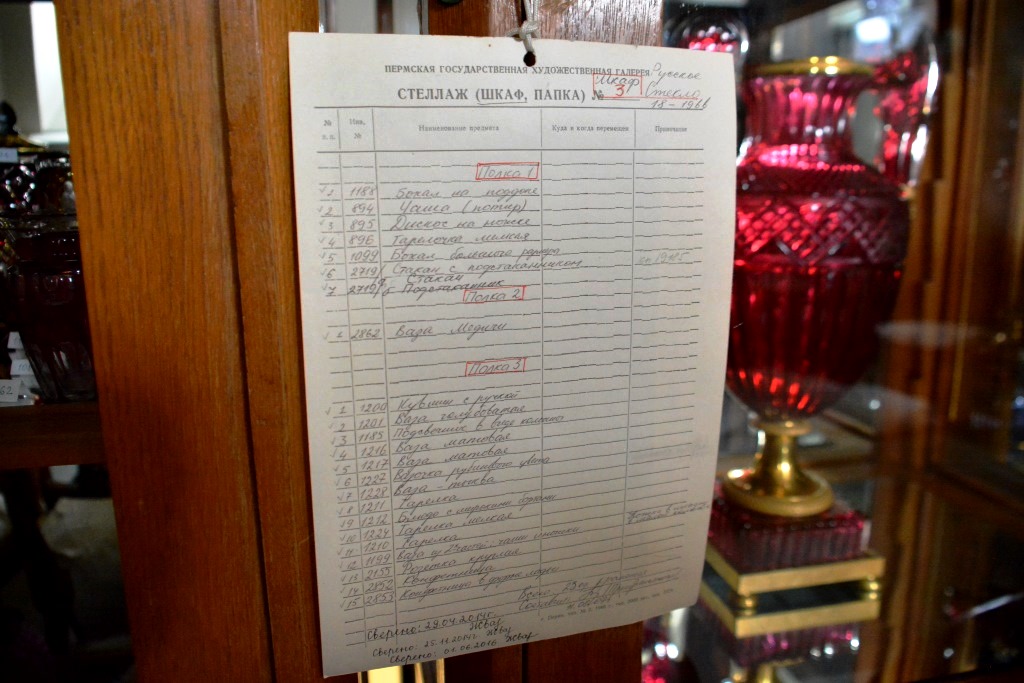 ПЕРМСКАЯ ГОСУДАРСТВЕННАЯ ХУДОЖЕСТВЕННАЯ ГАЛЕРЕЯ
Русское
СТЕЛЛАЖ (ШКАФ, ПАПКА) № Шкаф 3 Стекло
18 –
№ п. п. Инв. № Наименование предмета Куда и когда перемещен Примечание
Полка 1
√ 1 1188 Бокал на поддоне
√ 2 894 Чаша (потир)
√ 3 895 Дискос на ножке
√ 4 896 Тарелочка мелкая
√ 5 1099 Бокал большого размера
√ 6 2719/ Стакан с подстаканником
Стакан
√ 7 2719/б Подстаканник
Полка 2
√ 1 2862 Ваза Медичи
Полка 3
√ 1 1200 Кувшин с ручкой
√ 2 1201 Ваза голубоватая
√ 3 1185 Подсвечник в виде колонны
√ 4 1216 Ваза матовая
√ 5 1217 Ваза матовая
√ 6 1227 рубинового цвета
√ 7 1228 Ваза -
√ 8 1211 Тарелка
√ 9 1212 Блюдо с широкими бортами
√ 10 1224 Тарелка мелкая
√ 11 1210 Тарелка
√ 12 1199 Ваза
√ 13 2155 Розетка круглая
√ 14 2852 Конфетница
√ 15 2853 Конфетница в форме лодки
Всего
Сверено: 29.04.2014г.
Сверено: 25.11.2014г
Сверено: 01.06.2016